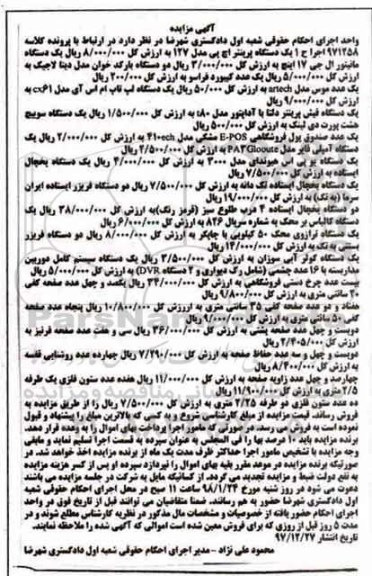 آگهی مزایده
واحد اجرای احکام حقوقی شعبه اول دادگستری شهرضا در نظر دارد در ارتباط با پرونده کلاسه
۹۷۱۲۵۸ اجرا ح ۱ یک دستگاه پرینتر اچ پی مدل ۱۲۷ به ارزش کل ۸/۰۰۰/۰۰۰ ریال یک دستگاه
مانیتور ال جی ۱۷ اینچ به ارزش کل ۳/۰۰۰/۰۰۰ ریال دو دستگاه بارکد خوان مدل دیتا لاجیک به
ارزش کل ۵/۰۰۰/۰۰۰ ریال یک عدد کیبورد فراسو به ارزش کل ۲۰۰/۰۰۰ ریال
یک عدد موس مدل artech به ارزش کل ۵۰/۰۰۰ ریال یک دستگاه لپ تاپ ام اس آی مدل cx۶۱ به
ارزش کل ۹/۰۰۰/۰۰۰ ریال
یک دستگاه فیش پرینتر دلتا با آداپتور مدل t۸۰ به ارزش کل ۱/۵۰۰/۰۰۰ ریال یک دستگاه سوییچ
هشت پورت دی لینک به ارزش کل ۵۰۰/۰۰۰ ریال
یک عدد صندوق پول فروشگاهی E-POS مشکی مدل ۴۱۰ech به ارزش کل ۲/۰۰۰/۰۰۰ ریال یک
دستگاه آمپلی فایر مدل PA۳Glooute به ارزش کل ۲/۵۰۰/۰۰۰ ریال
یک دستگاه یو پی اس هیوندای مدل ۳۰۰۰ به ارزش کل ۴/۰۰۰/۰۰۰ ریال یک دستگاه یخچال
ایستاده به ارزش کل ۷/۵۰۰/۰۰۰ ریال
یک دستگاه یخچال ایستاده تک دانه به ارزش کل ۷/۵۰۰/۰۰۰ ریال دو دستگاه فریزر ایستاده ایران
سرما (به تک) به ارزش کل ۱۹/۰۰۰/۰۰۰ ریال
دو دستگاه یخچال ایستاده ۴ درب طلوع سبز (قرمز رنگ)به ارزش کل ۳۸/۰۰۰/۰۰۰ ریال یک
دستگاه کالباس بر محک به شماره سریال ۸۲۶ به ارزش کل ۶/۰۰۰/۰۰۰ ریال
یک دستگاه ترازوی محک ۵۰ کیلویی با چاپگر به ارزش کل ۸/۰۰۰/۰۰۰ ریال دو دستگاه فریزر
بستنی به تک به ارزش کل ۱۴/۰۰۰/۰۰۰ ریال
یک دستگاه کولر آبی سوزان به ارزش کل ۳/۵۰۰/۰۰۰ ریال یک دستگاه سیستم کامل دوربین
مداربسته با ۱۶ عدد چشمی (شامل رک دیواری و ۲ دستگاه DVR) به ارزش کل ۵/۰۰۰/۰۰۰ ریال
بیست عدد چرخ دستی فروشگاهی به ارزش کل ۳۴/۰۰۰/۰۰۰ ریال یکصد و چهل عدد صفحه کفی
۳۰ سانتی متری به ارزش کل ۹/۸۰۰/۰۰۰ ریال
هفتاد و دو عدد صفحه کفی ۳۵ سانتی متری به ارزش کل ۱۰/۸۰۰/۰۰۰ ریال پنجاه عدد صفحه
کفی ۵۰ سانتی متری به ارزش کل ۹/۰۰۰/۰۰۰ ریال
دویست و چهل عدد صفحه پشتی به ارزش کل ۳۶/۰۰۰/۰۰۰ ریال سی و هفت عدد صفحه قرنیز به
ارزش کل ۲/۴۰۵/۰۰۰ ریال
دویست و چهل و سه عدد حفاظ صفحه به ارزش کل ۷/۲۹۰/۰۰۰ ریال چهارده عدد روشنایی قفسه
به ارزش کل ۸/۴۰۰/۰۰۰ ریال
چهارصد و چهل عدد زاویه صفحه به ارزش کل ۱۱/۰۰۰/۰۰۰ ریال هفده عدد ستون فلزی یک طرفه
۲/۵ متری به ارزش کل ۱۱/۹۰۰/۰۰۰ ریال
ده عدد ستون فلزی دو طرفه ۲/۲۵ متری به ارزش کل ۷/۵۰۰/۰۰۰ ریال را از طریق مزایده به
فروش رساند، قیمت مزایده از مبلغ کارشناسی شروع و به کسی که بالاترین مبلغ را پیشنهاد و قبول
نموده است به فروش می رسد. در صورتی که مامور اجرا پرداخت بهای اموال را به وعده قرار دهد.
برنده مزایده باید ۱۰ درصد بها را فی المجلس به عنوان سپرده به قسمت اجرا تسلیم نماید و مابقی
وجه مزایده با تشخیص مامور اجرا حداکثر ظرف مدت یک ماه از برنده مزایده اخذ خواهد شد. در
صورتیکه برنده مزایده در موعد مقرر بقیه بهای اموال را نپردازد سپرده او پس از کسر هزینه مزایده
به نفع دولت ضبط و مزایده تجدید می گردد. از کسانیکه مایل به شرکت در جلسه مزایده می باشند
دعوت می شود در روز شنبه مورخ ۹۸/۱/۲۴ ساعت ۱۱ صبح در محل اجرای احکام حقوقی شعبه
اول دادگستری شهرضا حضور به هم رسانند. ضمنا متقاضیان می توانند قبل از تاریخ فوق در واحد
اجرای احکام حضور یافته از خصوصیات و مشخصات مال مذکور در نظریه کارشناس مطلع شوند و در
مدت ۵ روز قبل از روزی که برای فروش معین شده است اموالی که آگهی شده را ملاحظه نمایند.
تاریخ انتشار ۹۷/۱۲/۲۷
محمود علی نژاد – مدیر اجرای احکام حقوقی شعبه اول دادگستری شهرضا